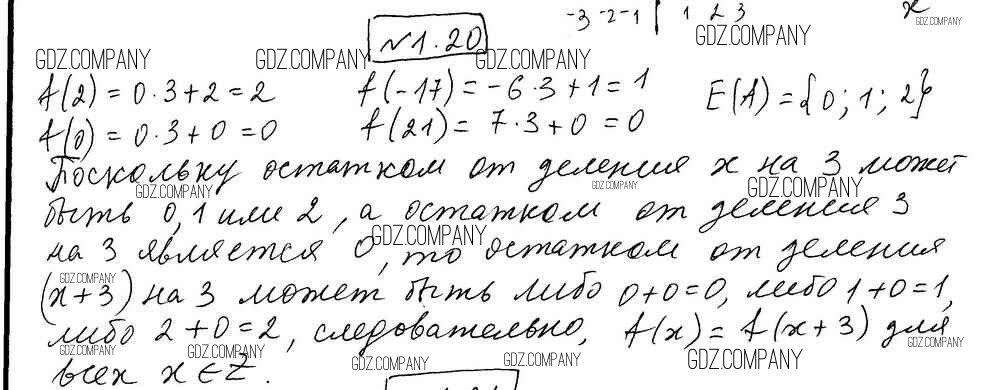 -3 -2 -1 | 1 2 3 x
N1.20
f(2) = 0·3+2 = 2 f(-17) = -6·3+1 = 1 E(f) = {0; 1; 2}
f(0) = 0·3+0 = 0 f(21) = 7·3+0 = 0
Поскольку остатком от деления x на 3 может
быть 0, 1 или 2, а остатком от деления 3
на 3 является 0, то остатком от деления
(x+3) на 3 может быть либо 0+0=0, либо 1+0=1,
либо 2+0=2, следовательно, f(x) = f(x+3) для
всех x∈Z.
GDZ.COMPANY
GDZ.COMPANY
GDZ.COMPANY GDZ.COMPANY GDZ.COMPANY
GDZ.COMPANY GDZ.COMPANY GDZ.COMPANY
GDZ.COMPANY
GDZ.COMPANY
GDZ.COMPANY GDZ.COMPANY GDZ.COMPANY GDZ.COMPANY GDZ.COMPANY